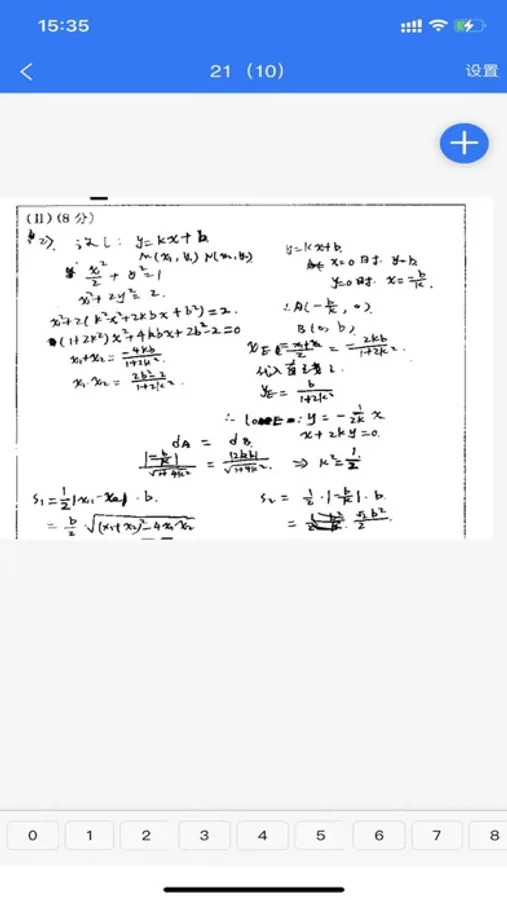 15:35
21（10）
设置
(II)(8分)
(2). 设 l: y=kx+b
M(x₁,y₁) N(x₂,y₂)
x²/2 + y²=1
x²+2y²=2.
x²+2(k²x²+2kbx+b²)=2.
(1+2k²)x²+4kbx+2b²-2=0
x₁+x₂ = -4kb/1+2k².
x₁·x₂ = 2b²-2/1+2k².
y=kx+b.
x=0时. y=b.
y=0时. x=-b/k.
∴A(-b/k, 0)
B(0, b)
x_E = x₁+x₂/2 = -2kb/1+2k².
代入直线
y_E = b/1+2k²
∴ l_OE: y = -1/2k x
x+2ky=0.
d_A = d_B.
|-b/k|/√1+4k² = |2kb|/√1+4k². ⇒ k²=1/2
S₁=1/2|x₁-x₂|·b.
=b/2 √(x₁+x₂)²-4x₁x₂
S₂ = 1/2·|-b/k|·b.
= √2b²/2
0
1
2
3
4
5
6
7
8